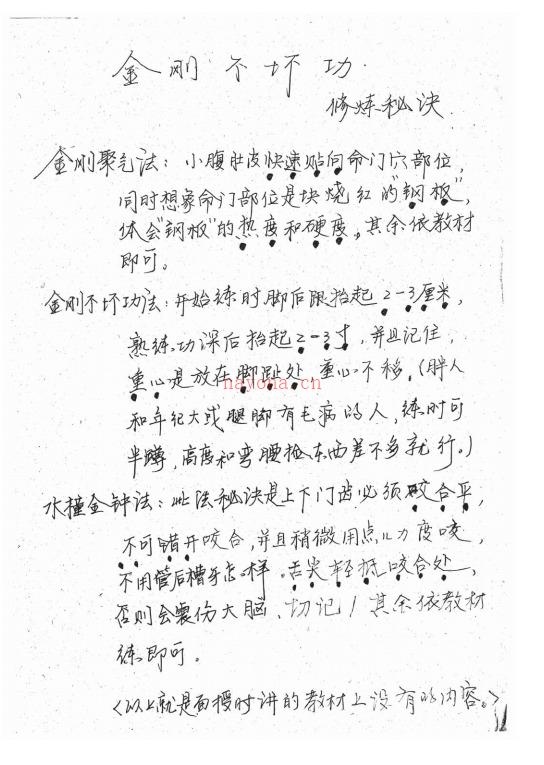 金刚不坏功
修炼秘决
金刚聚气法：小腹肚皮快速贴向命门穴部位，
同时想象命门部位是块烧红的"钢板"，
体会"钢板"的热度和硬度。其余依教材
即可。
金刚不坏功法：开始练时脚后跟抬起2-3厘米，
熟练功深后抬起2-3寸，并且记住，
重心是放在脚趾处 重心不移。（胖人
nayona.cn
和年纪大或腿脚有毛病的人，练时可
半蹲，高度和弯腰捡东西差不多就行。）
水撞金钟法：此法秘决是上下门齿必须咬合平，
不可错开咬合，并且稍微用点儿力度咬，
不用管后槽牙怎样。舌尖轻抵咬合处，
否则会震伤大脑、切记！其余依教材
练即可。
<以上就是面授时讲的教材上没有的内容。>